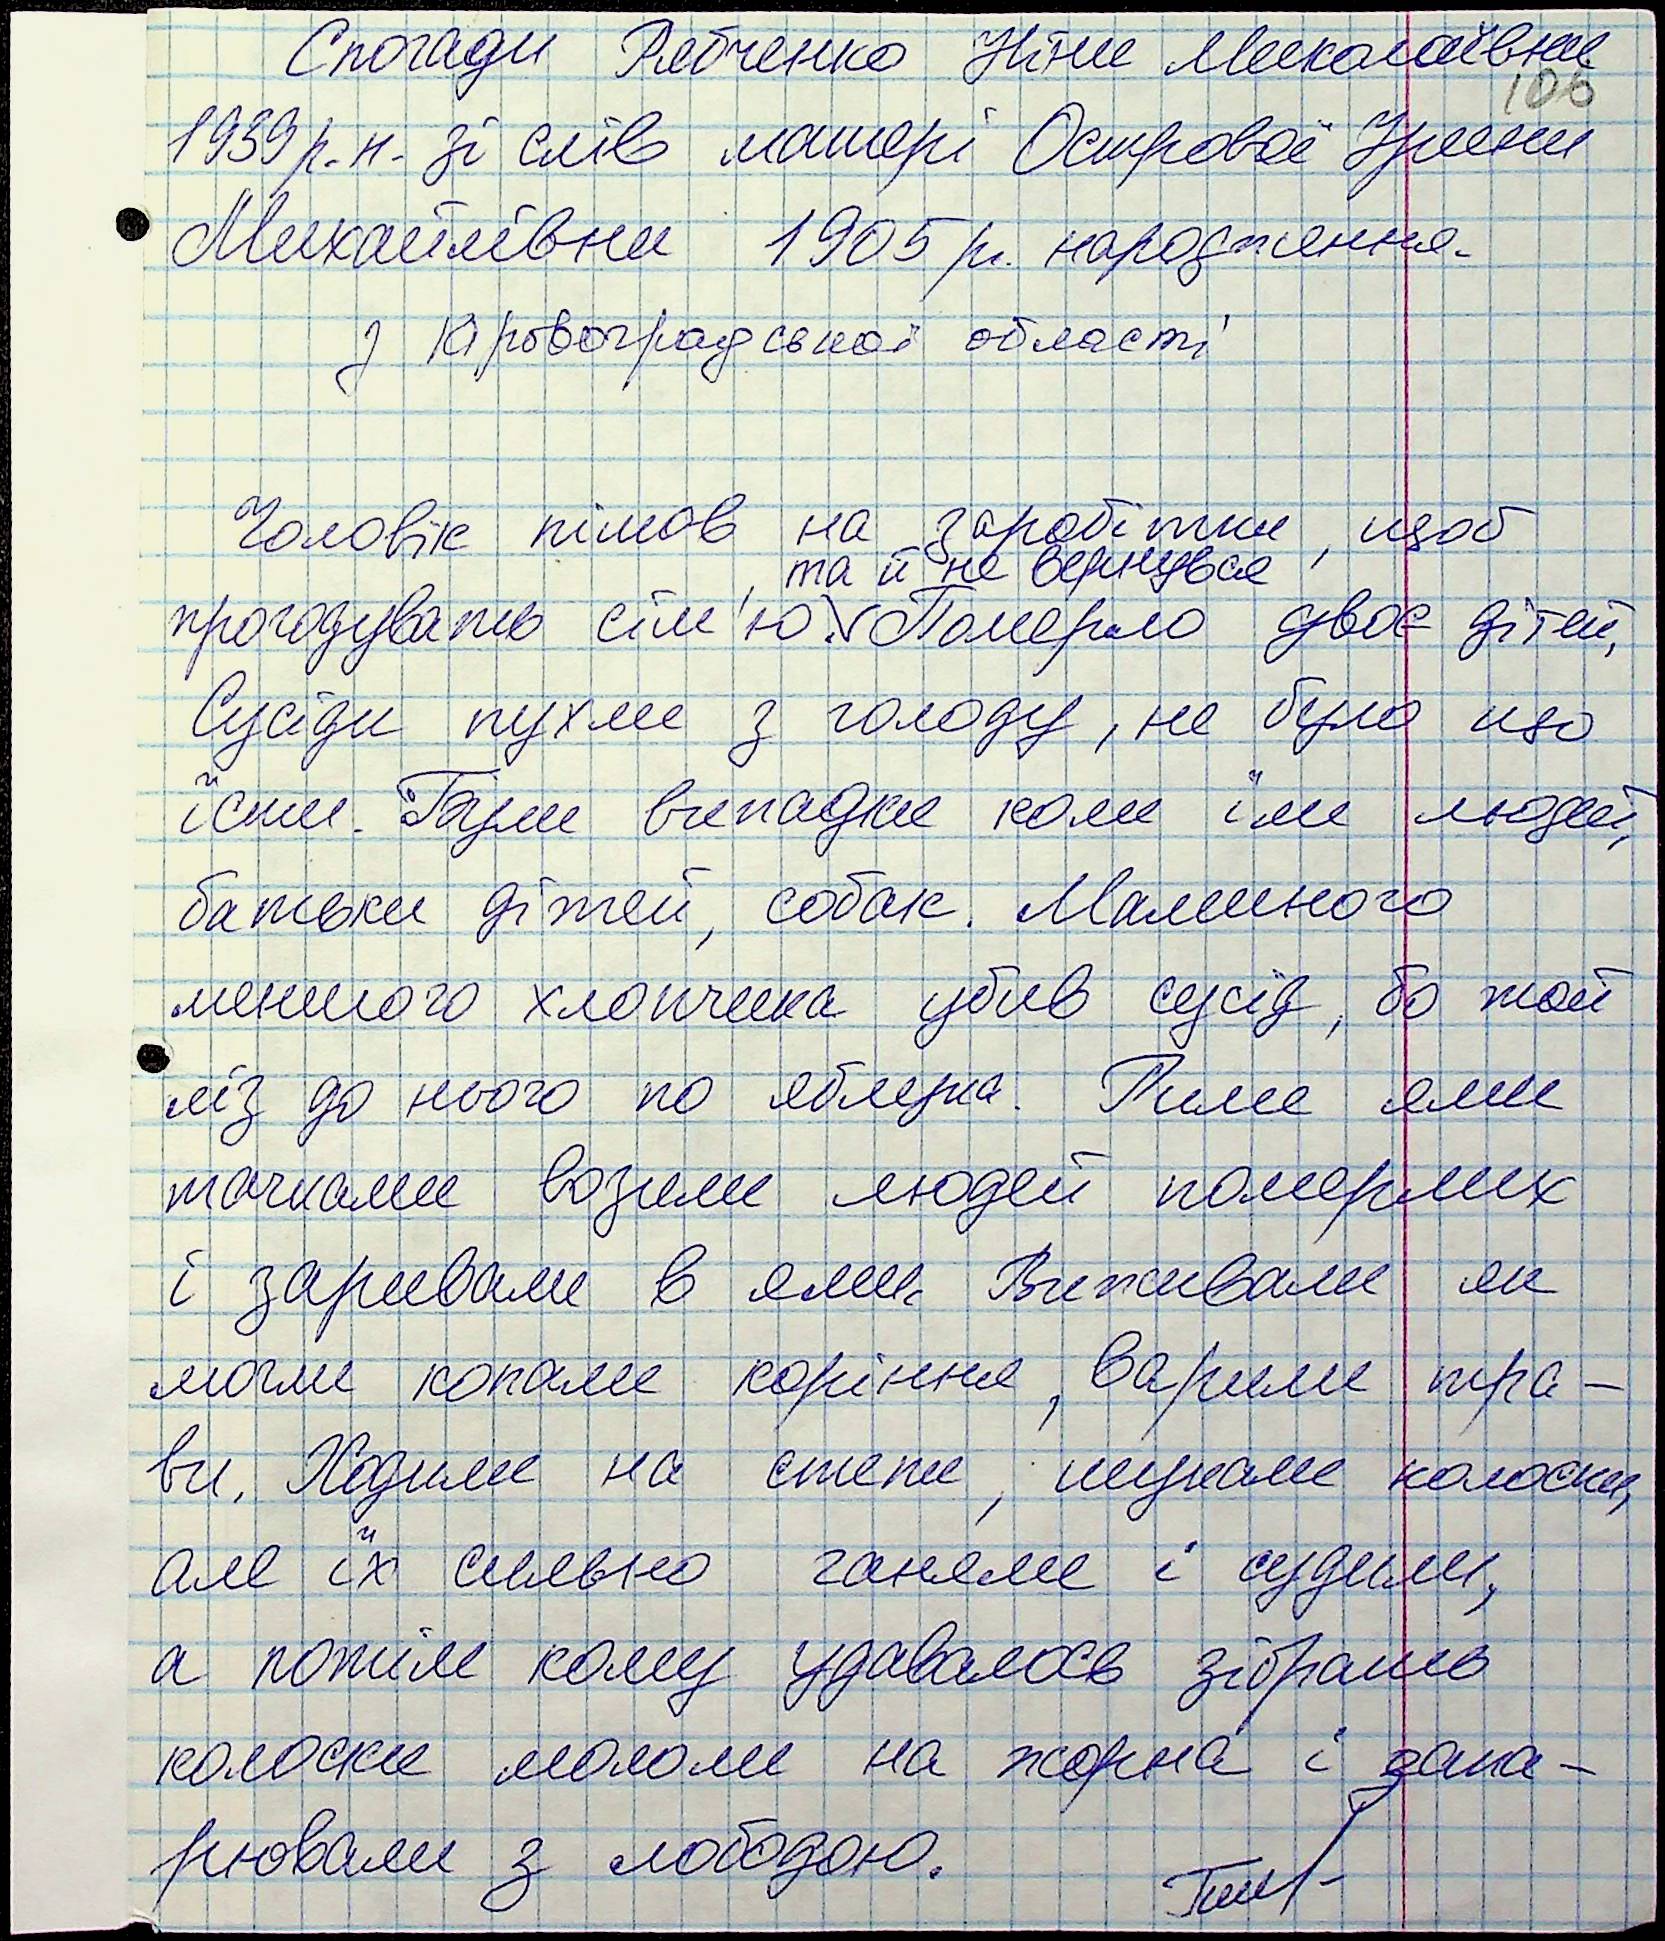 Спогади Рябченко Ніни Миколаївни
106
1939 р.н. зі слів матері Острової Ірини
Михайлівни 1905 р. народження.
з Кіровоградської області
Чоловік пішов на заробітки, щоб
та й не вернувся
прогодувать сім'ю. V Померло двоє дітей,
Сусіди пухли з голоду, не було що
їсти. Були випадки коли їли людей,
батьки дітей, собак. Маминого
меншого хлопчика убив сусід, бо той
ліз до нього по яблука. Рили ями
тачками возили людей померлих
і заривали в ями. Виживали як
могли копали коріння, варили тра-
ви. Ходили на степи, шукали колоски,
але їх сильно ганяли і судили,
а потім кому удавалось зібрать
колоски мололи на жорна і запа-
рювали з лободою.